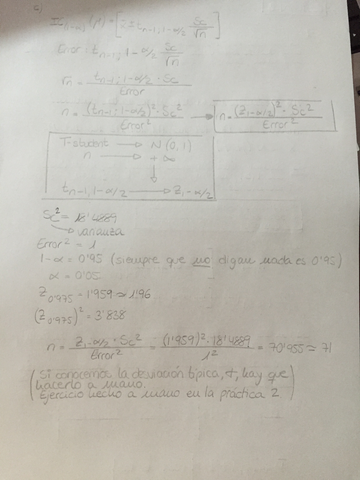 c)
(μ) = [x̄ ± t n-1; 1-α/2 Sc/√n]
Error: t n-1; 1-α/2 Sc/√n
√n = t n-1; 1-α/2 · Sc / Error
n = (t n-1; 1-α/2)² · Sc² / Error² → n = (Z 1-α/2)² · Sc² / Error²
T-student → N(0,1)
n → +∞
↓
t n-1, 1-α/2 → Z 1-α/2
Sc² = 18'4889
↳ varianza
Error² = 1
1-α = 0'95 (siempre que no digan nada es 0'95)
α = 0'05
Z 0'975 = 1'959 ≈ 1'96
(Z 0'975)² = 3'838
n = Z 1-α/2 · Sc² / Error² = (1'959)² · 18'4889 / 1² = 70'955 ≈ 71
(Si conocemos la desviación típica, σ, hay que
hacerlo a mano.
Ejercicio hecho a mano en la práctica 2)